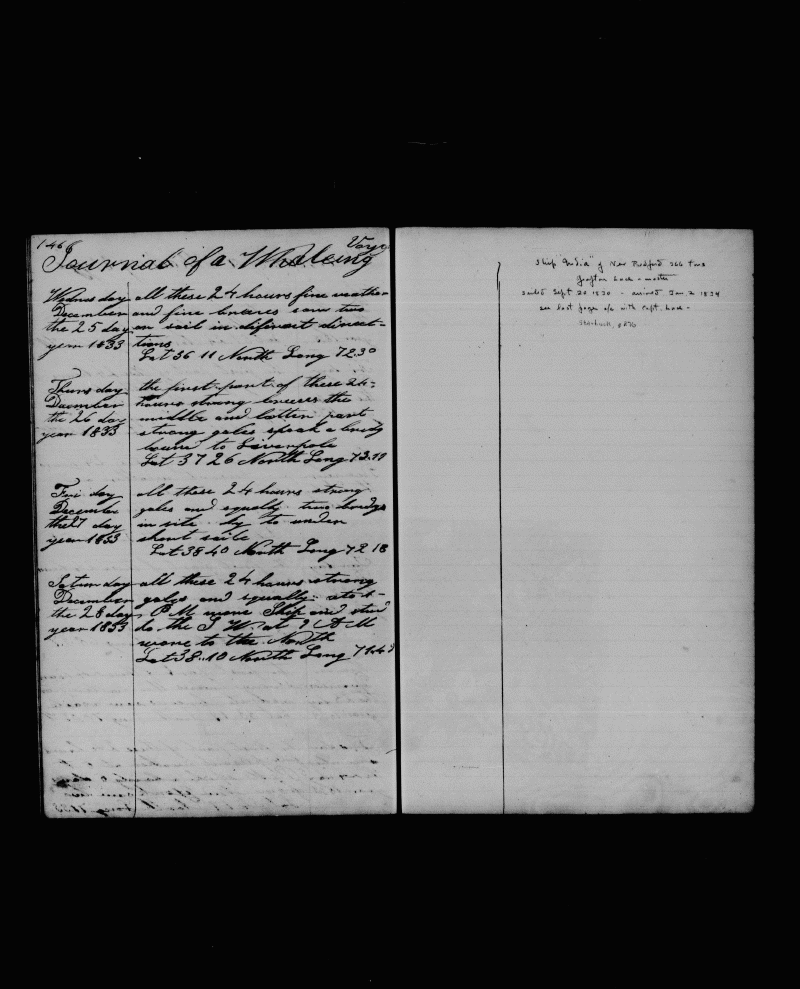 146
Voya
Journal of a Whaleing
Wednesday all these 24 hours fine weather
December and fine breeses saw two
the 25 day on sail in diferent direct-
year 1833 tions
Lat 36 11 North Long 72.30
Thursday the first part of these 24-
December hours strong breeses the
the 26 day middle and latter part
year 1833 strong gales spoak a bregg
bound to Liverpole
Lat 37 26 North Long 73.19
Friday all these 24 hours strong
December gales and squally two bredgs
the 27 day in site by to under
year 1833 short saile
Lat 38 40 North Long 72 18
Saturday all these 24 hours strong
December gales and squally at 4-
the 28 day P M wore Ship and stud
year 1833 to the S W at 9 A M
wore to the North
Lat 38..10 North Long 71.4
Ship "India" of New Bedford 366 tons
Grafton Luce - master
sailed Sept 20 1830 - arrived Jan. 2 1834
see last page o/c with Capt. Luce -
Starbuck, p276